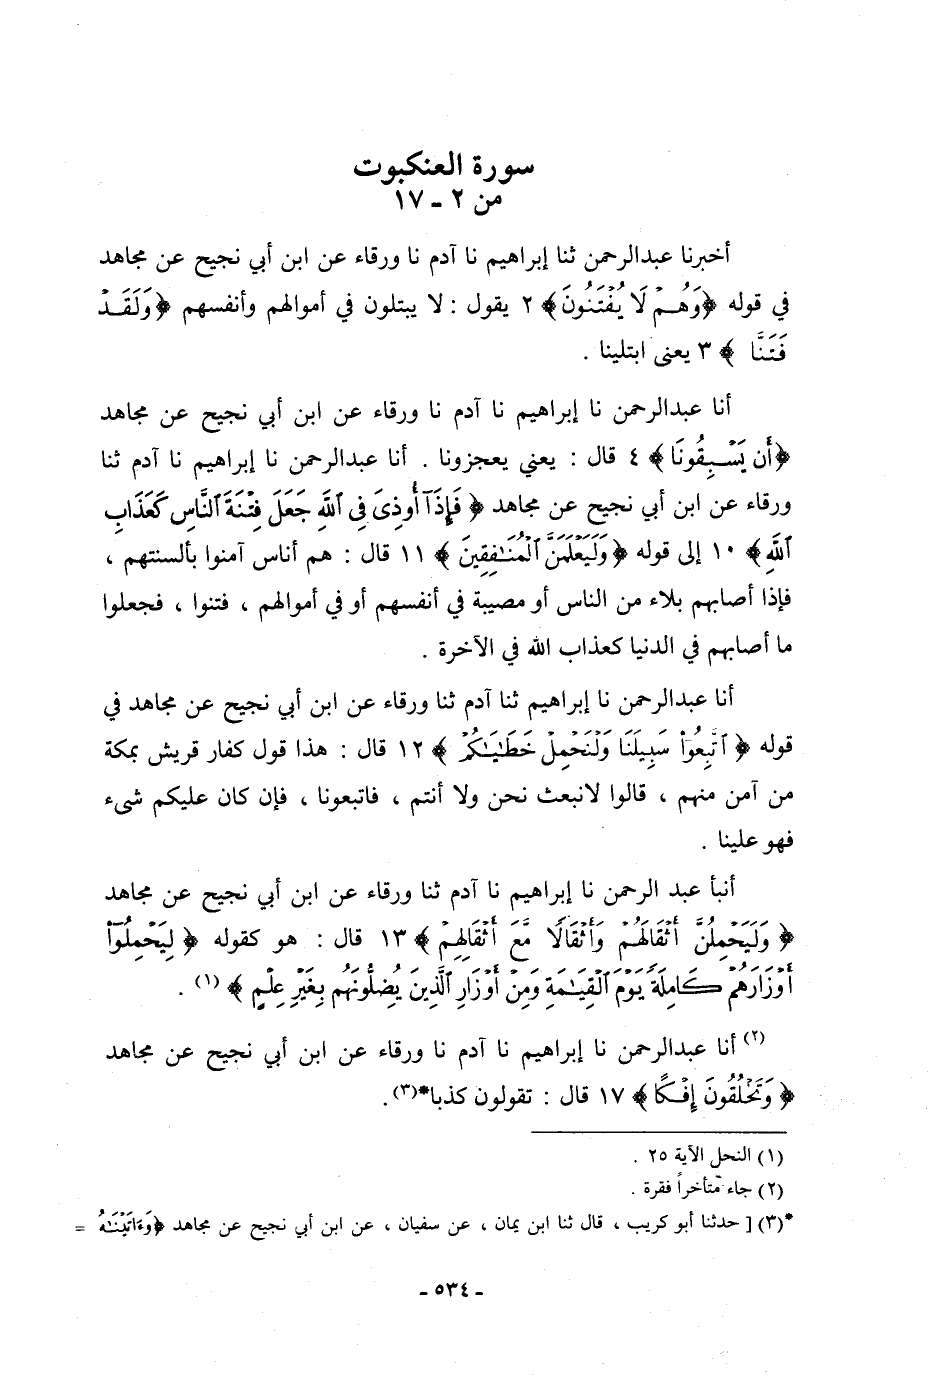 سورة العنكبوت
من ٢ - ١٧
أخبرنا عبدالرحمن ثنا إبراهيم نا آدم نا ورقاء عن ابن أبي نجيح عن مجاهد
في قوله ﴿وَهُمْ لَا يُفْتَنُونَ﴾ ٢ يقول : لا يبتلون في أموالهم وأنفسهم ﴿وَلَقَدْ
فَتَنَّا ﴾ ٣ يعنى ابتلينا .
أنا عبدالرحمن نا إبراهيم نا آدم نا ورقاء عن ابن أبي نجيح عن مجاهد
﴿أَن يَسْبِقُونَا﴾ ٤ قال : يعني يعجزونا . أنا عبدالرحمن نا إبراهيم نا آدم ثنا
ورقاء عن ابن أبي نجيح عن مجاهد ﴿ فَإِذَآ أُوذِىَ فِى ٱللَّهِ جَعَلَ فِتْنَةَ ٱلنَّاسِ كَعَذَابِ
ٱللَّهِ﴾ ١٠ إلى قوله ﴿وَلَيَعْلَمَنَّ ٱلْمُنَٰفِقِينَ﴾ ١١ قال : هم أناس آمنوا بألسنتهم ،
فإذا أصابهم بلاء من الناس أو مصيبة في أنفسهم أو في أموالهم ، فتنوا ، فجعلوا
ما أصابهم في الدنيا كعذاب الله في الآخرة .
أنا عبدالرحمن نا إبراهيم ثنا آدم ثنا ورقاء عن ابن أبي نجيح عن مجاهد في
قوله ﴿ ٱتَّبِعُوا۟ سَبِيلَنَا وَلْنَحْمِلْ خَطَٰيَٰكُمْ ﴾ ١٢ قال : هذا قول كفار قريش بمكة
من آمن منهم ، قالوا لانبعث نحن ولا أنتم ، فاتبعونا ، فإن كان عليكم شىء
فهو علينا .
أنبأ عبد الرحمن نا إبراهيم نا آدم ثنا ورقاء عن ابن أبي نجيح عن مجاهد
﴿ وَلَيَحْمِلُنَّ أَثْقَالَهُمْ وَأَثْقَالًا مَّعَ أَثْقَالِهِمْ ﴾ ١٣ قال : هو كقوله ﴿ لِيَحْمِلُوٓا۟
أَوْزَارَهُمْ كَامِلَةً يَوْمَ ٱلْقِيَٰمَةِ وَمِنْ أَوْزَارِ ٱلَّذِينَ يُضِلُّونَهُم بِغَيْرِ عِلْمٍ ﴾ (١) .
(٢) أنا عبدالرحمن نا إبراهيم نا آدم نا ورقاء عن ابن أبي نجيح عن مجاهد
﴿ وَتَخْلُقُونَ إِفْكًا﴾ ١٧ قال : تقولون كذبا*(٣).
(١) النحل الآية ٢٥ .
(٢) جاء متأخراً فقرة .
*(٣) [ حدثنا أبو كريب ، قال ثنا ابن يمان ، عن سفيان ، عن ابن أبي نجيح عن مجاهد ﴿وَءَاتَيْنَٰهُ =
- ٥٣٤ -